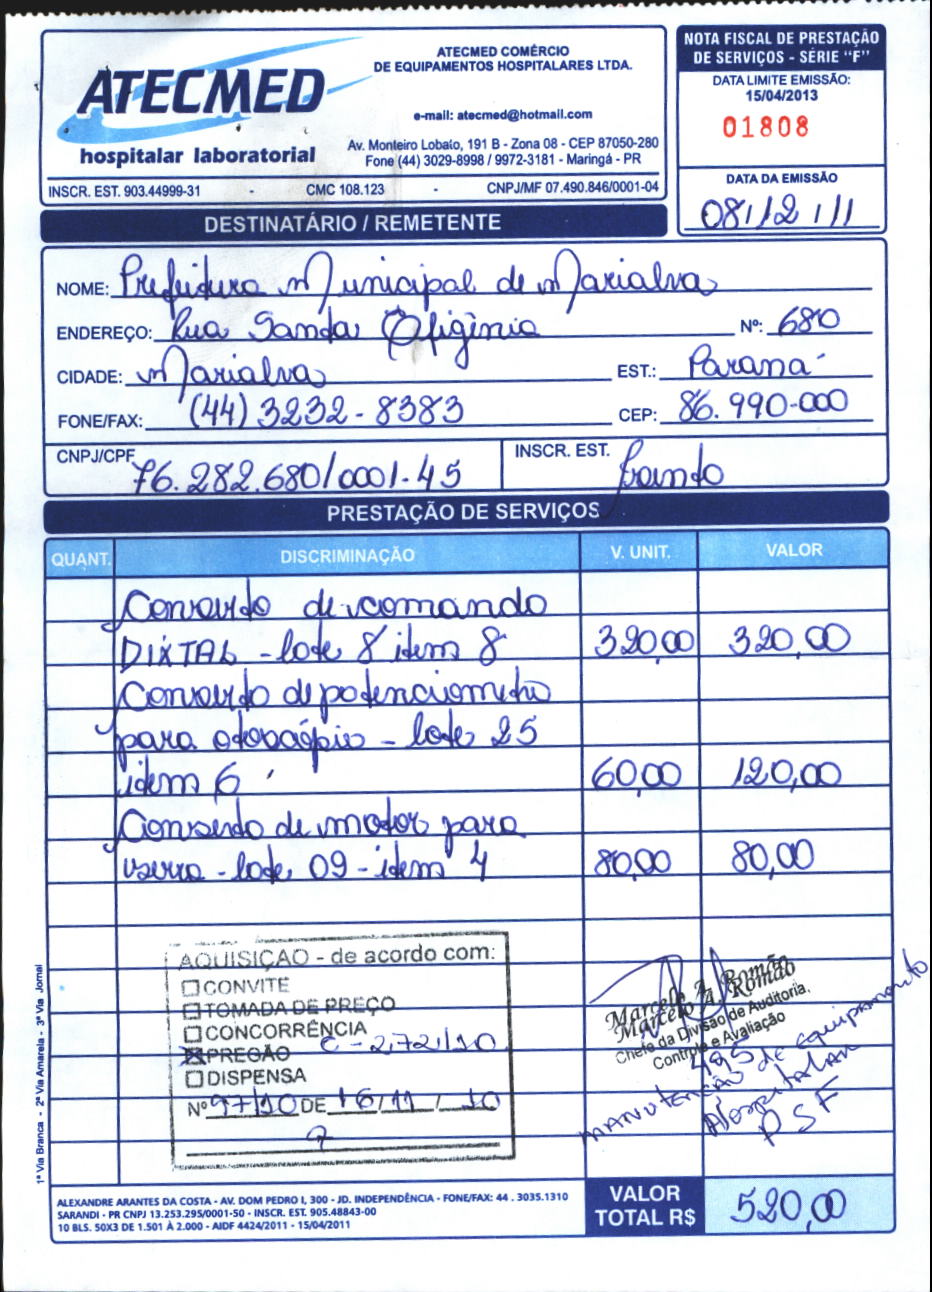 ATECMED
hospitalar laboratorial
ATECMED COMÉRCIO
DE EQUIPAMENTOS HOSPITALARES LTDA.
e-mail: atecmed@hotmail.com
Av. Monteiro Lobato, 191 B - Zona 08 - CEP 87050-280
Fone (44) 3029-8998 / 9972-3181 - Maringá - PR
INSCR. EST. 903.44999-31 - CMC 108.123 - CNPJ/MF 07.490.846/0001-04
NOTA FISCAL DE PRESTAÇÃO
DE SERVIÇOS - SÉRIE "F"
DATA LIMITE EMISSÃO:
15/04/2013
01808
DATA DA EMISSÃO
08/12/11
DESTINATÁRIO / REMETENTE
NOME: Prefeitura Municipal de Marialva
ENDEREÇO: Rua Santa Efigênia Nº: 680
CIDADE: Marialva EST.: Paraná
FONE/FAX: (44) 3232-8383 CEP: 86.990-000
CNPJ/CPF 76.282.680/0001-45 INSCR. EST. Isento
PRESTAÇÃO DE SERVIÇOS
QUANT. DISCRIMINAÇÃO V. UNIT. VALOR
Conserto de comando
DIXTAL - lote 8 item 8 320,00 320,00
Conserto de potenciometro
para otoscópio - lote 25
item 6 60,00 120,00
Conserto de motor para
serra - lote 09 - item 4 80,00 80,00
AQUISIÇÃO - de acordo com:
CONVITE
TOMADA DE PREÇO
CONCORRÊNCIA
PREGÃO C-272/10
DISPENSA
Nº 97/10 DE 16/11/10
Marcelo A. Romão
Marcelo A. Romão
Chefe da Divisão de Auditoria,
Controle e Avaliação
495
MANUTENÇÃO de equipamento
Hospitalar
PSF
1ª Via Branca - 2ª Via Amarela - 3ª Via Jornal
ALEXANDRE ARANTES DA COSTA - AV. DOM PEDRO I, 300 - JD. INDEPENDÊNCIA - FONE/FAX: 44 . 3035.1310
SARANDI - PR CNPJ 13.253.295/0001-50 - INSCR. EST. 905.48843-00
10 BLS. 50X3 DE 1.501 À 2.000 - AIDF 4424/2011 - 15/04/2011
VALOR
TOTAL R$ 520,00